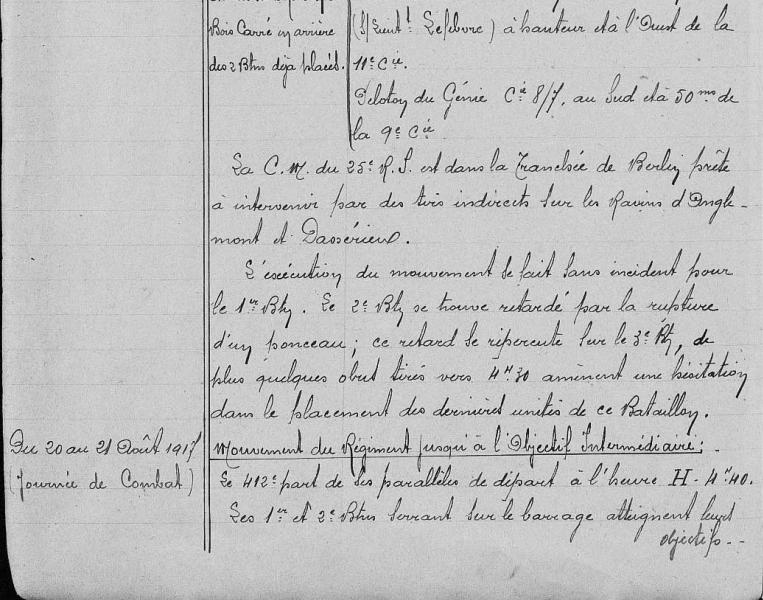 Bois Carré en arrière
des 2 Btns déjà placés.
(S/Lieutt Lefebvre) à hauteur et à l'Ouest de la
11e Cie.
Peloton du Génie Cie 8/7, au Sud et à 50ms de
la 9e Cie
La C.M. du 25e R.I. est dans la Tranchée de Berlin prête
à intervenir par des tirs indirects sur les Ravins d'Ingle-
mont et Dassérieux.
L'exécution du mouvement se fait sans incident pour
le 1er Btn. Le 2e Btn se trouve retardé par la rupture
d'un ponceau; ce retard se répercute sur le 3e Btn, de
plus quelques obus tirés vers 4H30 amènent une hésitation
dans le placement des dernières unités de ce Bataillon.
Du 20 au 21 Août 1917
(Journée de Combat)
Mouvement du Régiment jusqu'à l'Objectif Intermédiaire:
Le 412e part de ses parallèles de départ à l'heure H - 4H40.
Les 1er et 2e Btns serrant sur le barrage atteignent leurs
objectifs--